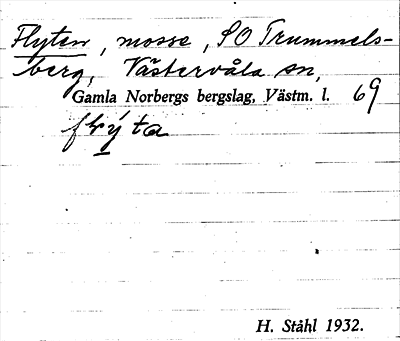 Flyten, mosse, SO Trummels-
berg, Västervåla sn,
Gamla Norbergs bergslag, Västm. l. 69
H. Ståhl 1932.